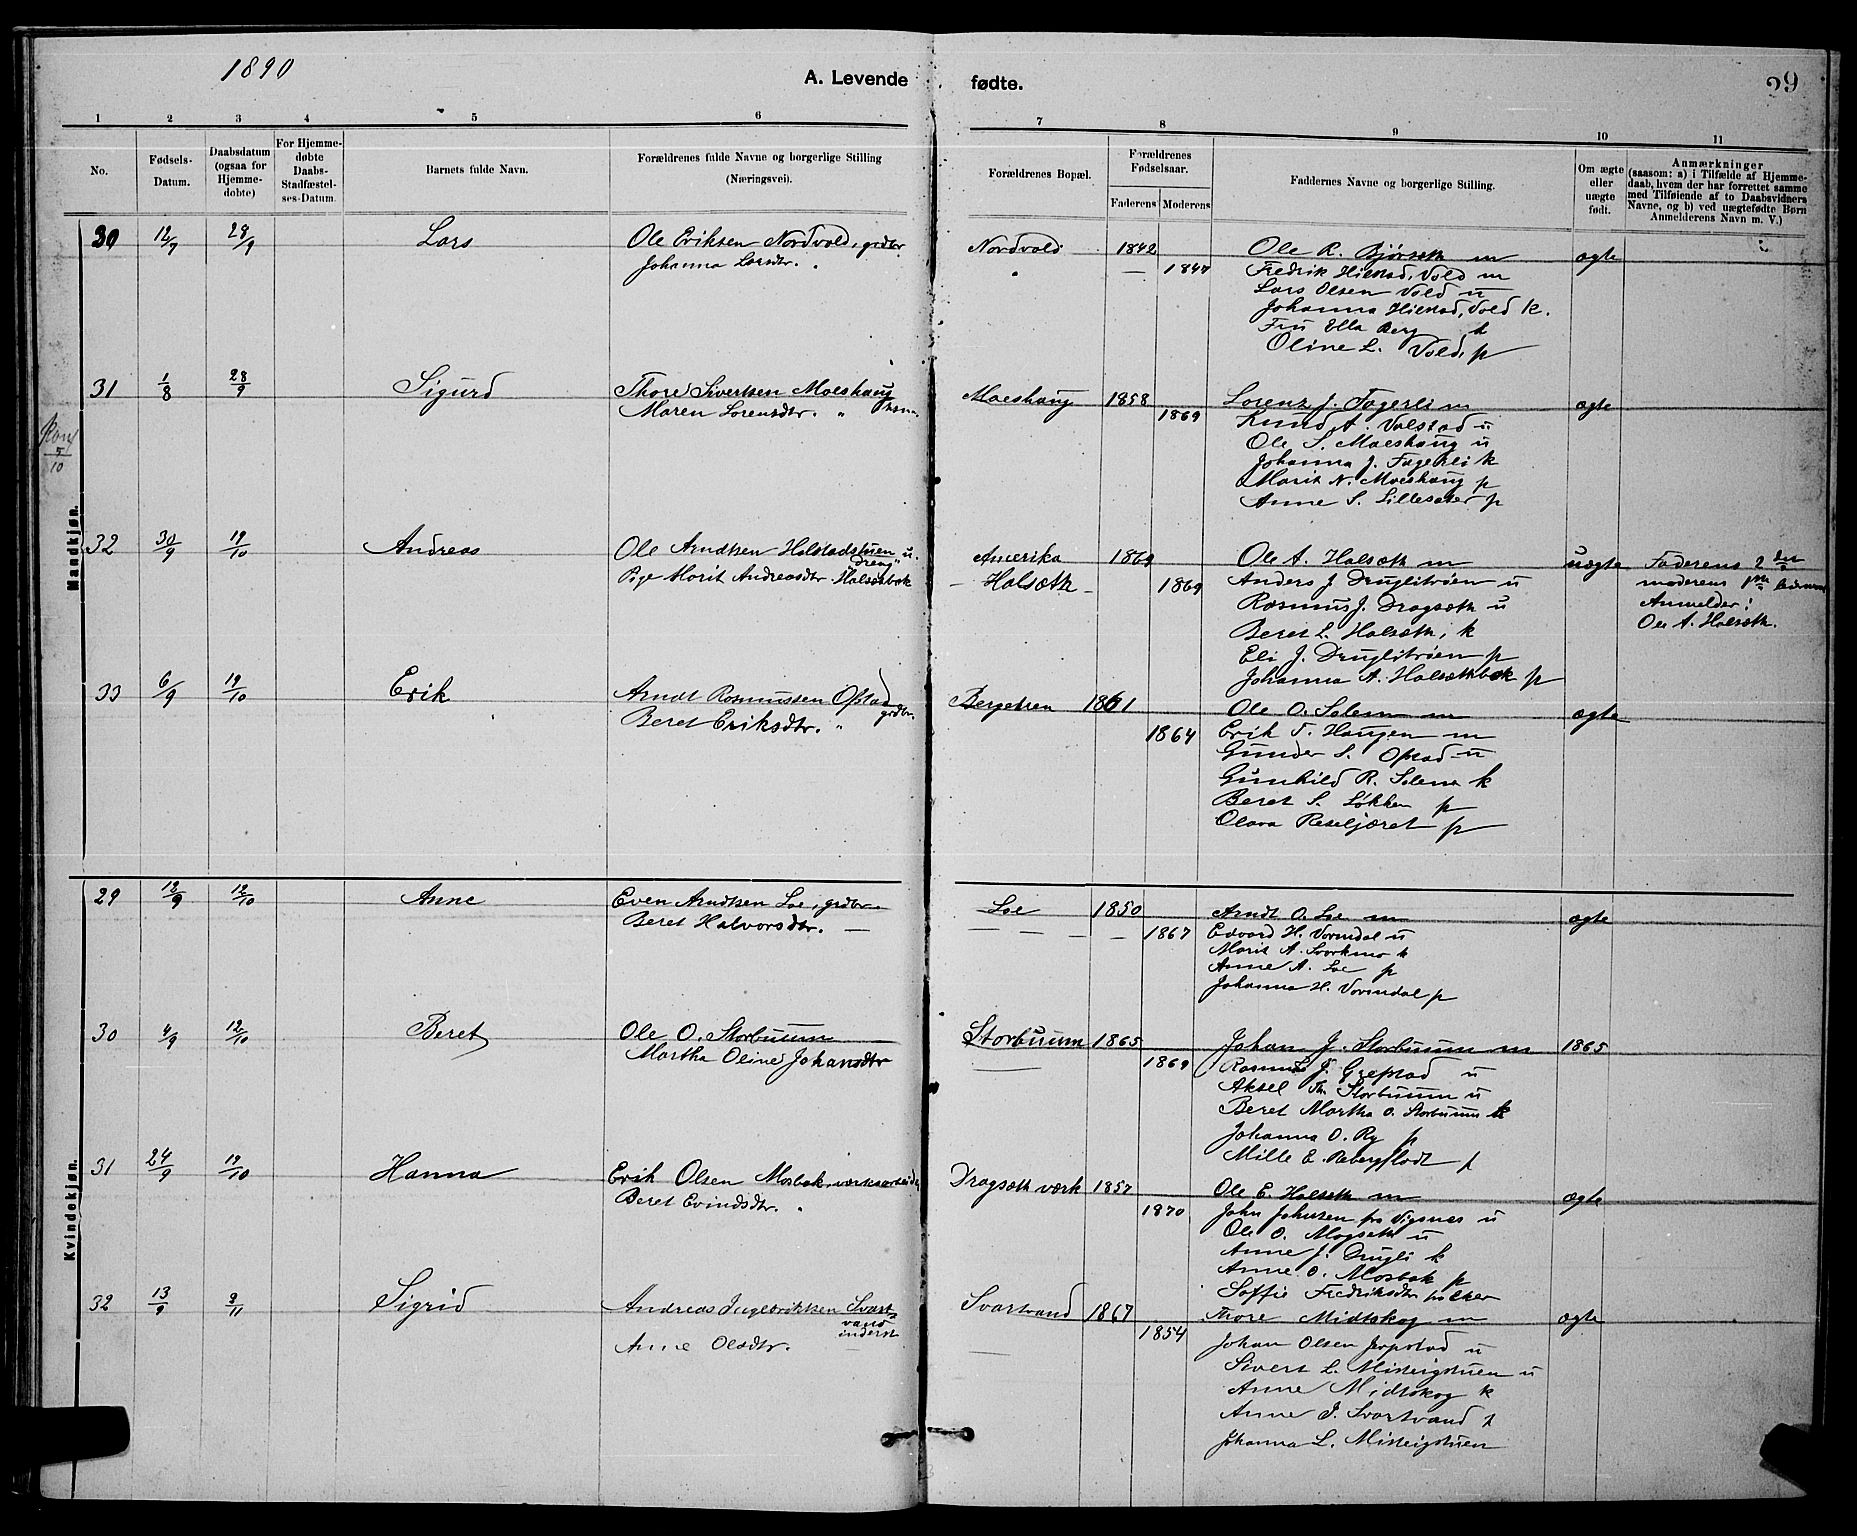 1890
A. Levende fødte.
29
1 2 3 4 5 6 7 8 9 10 11
No.
Fødsels-Datum.
Daabsdatum (ogsaa for Hjemme-døbte)
For Hjemme-døbte Daabs-Stadfæstel-ses-Datum.
Barnets fulde Navn.
Forældrenes fulde Navne og borgerlige Stilling (Næringsvei).
Forældrenes Bopæl.
Forældrenes Fødselsaar.
Faderens Moderens
Faddernes Navne og borgerlige Stilling.
Om ægte eller uægte født.
Anmærkninger
(saasom: a) i Tilfælde af Hjemme-
daab, hvem der har forrettet samme
med Tilføiende af to Daabsvidners
Navne, og b) ved uægtefødte Børn
Anmelderens Navn m. V.)
Mandkjøn.
30 12/7 28/9 Lars Ole Eriksen Nordvold, grdbr. Nordvold 1842 Ole R. Bjørseth m ægte
Johanna Larsdtr. 1847 Fredrik Hielstad, Vold m
Lars Olsen Vold u
Johanna Hielstad, Vold k.
Fru Ella Berg k
Oline L. Vold, p
31 1/8 28/9 Sigurd Thore Sivertsen Moeshaug Moeshaug 1858 Lorens J. Fagerli m ægte
Maren Lorensdtr. " 1869 Knud A. Valstad u
Ole S. Moeshaug u
Johanna J. Fagerli k
Marit N. Moeshaug p
Anne S. Lillesæter p
5/10
32 30/9 19/10 Andreas Ole Arndtsen Halstadstuen u. Amerika 1869 Ole A. Halsæth m uægte Faderens 2den
"Dreng"
Pige Marit Andreasdtr Halsethbak Halsæth 1869 Anders J. Druglitrøen u moderens 1ste
Rasmus J. Dragseth u Anmelder:
Beret L. Halsæth, k Ole A. Halsæth.
Eli J. Druglitrøen p
Johanna A. Halsæthbak p
33 6/9 19/10 Erik Arndt Rasmussen Opstad grdbr. Bergetren 1861 Ole O. Solem m ægte
Beret Eriksdtr. " 1864 Erik T. Haugen m
Gunder S. Opstad u
Gunhild R. Solem k
Beret S. Løkken p
Olava Reseljæret p
Kvindekjøn.
29 12/9 12/10 Anne Even Arndtsen Loe, grdbr. Loe 1850 Arndt O. Loe m ægte
Beret Halvorsdtr. 1867 Edvard H. Vormdal u
Marit A. Svorkmo k
Anne A. Loe p
Johanna H. Vormdal p
30 4/9 12/10 Beret Ole O. Storbuum Storbuum 1865 Johan J. Storbuum m 1865
Martha Oline Johansdtr 1869 Rasmus J. Grefstad u
Aksel Th. Storbuum u
Beret Martha O. Storbuum k
Johanna O. Ry p
Mille E. Rebergflodt p
31 24/9 19/10 Hanna Erik Olsen Mosbak, værksarbeider Dragseth værk 1857 Ole E. Halseth m ægte
Beret Evindsdtr. 1870 John Johnsen fra Vigsnes u
Ole O. Mogseth u
Anne J. Drugli k
Anne O. Mosbak p
Soffie Fredriksdtr
32 13/9 9/11 Sigrid Andreas Ingebriktsen Svart- Svartvand 1867 Thore Midtskog m ægte
vand
inderst
Anne Olsdtr. 1854 Johan Olsen Jerpstad u
Sivert L. Misteigstuen u
Anne Midtskog k
Anne J. Svartvand
Johanna L. Misteigstuen